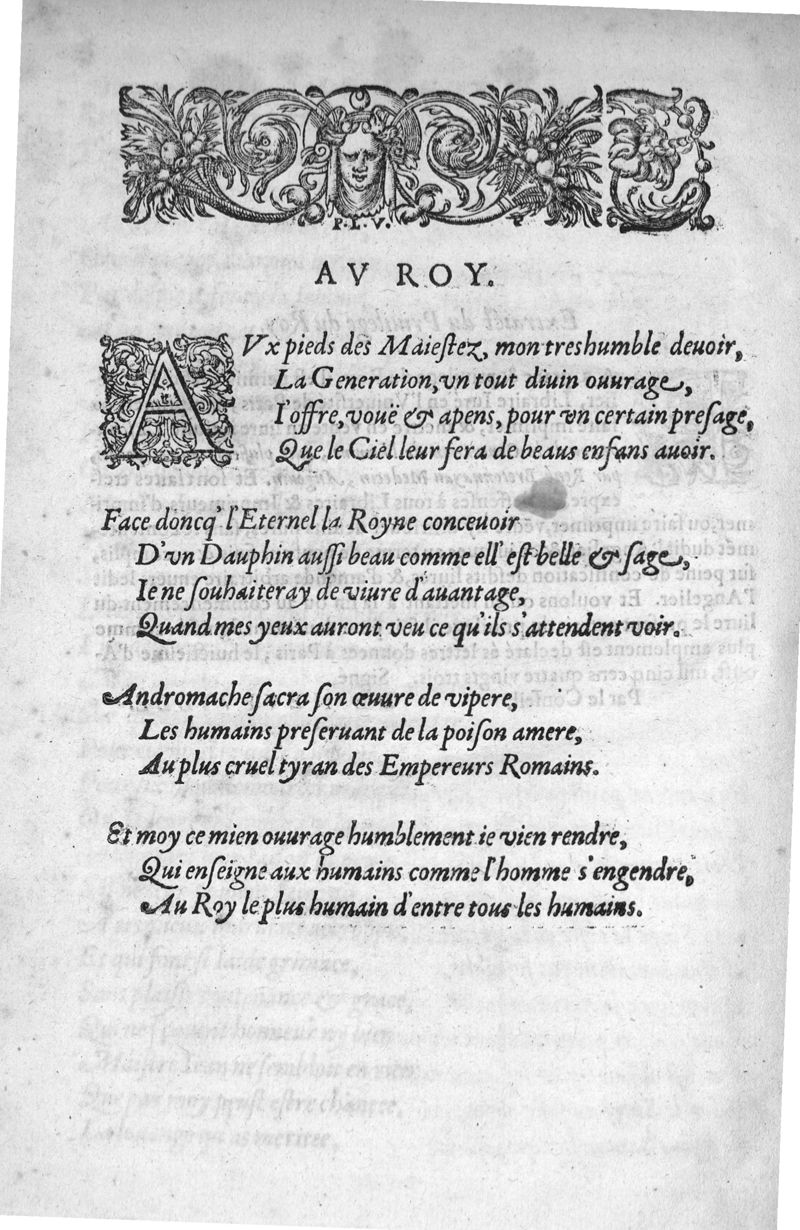 P. L. V.
AV ROY.
AVx pieds des Maiestez, mon treshumble deuoir,
La Generation, vn tout diuin ouurage,
I'offre, vouë & apens, pour vn certain presage,
Que le Ciel leur fera de beaus enfans auoir.
Face doncq' l'Eternel la Royne conceuoir
D'vn Dauphin aussi beau comme ell' est belle & sage,
Ie ne souhaiteray de viure d'auantage,
Quand mes yeux auront veu ce qu'ils s'attendent voir.
Andromache sacra son œuure de vipere,
Les humains preseruant de la poison amere,
Au plus cruel tyran des Empereurs Romains.
Et moy ce mien ouurage humblement ie vien rendre,
Qui enseigne aux humains comme l'homme s'engendre,
Au Roy le plus humain d'entre tous les humains.